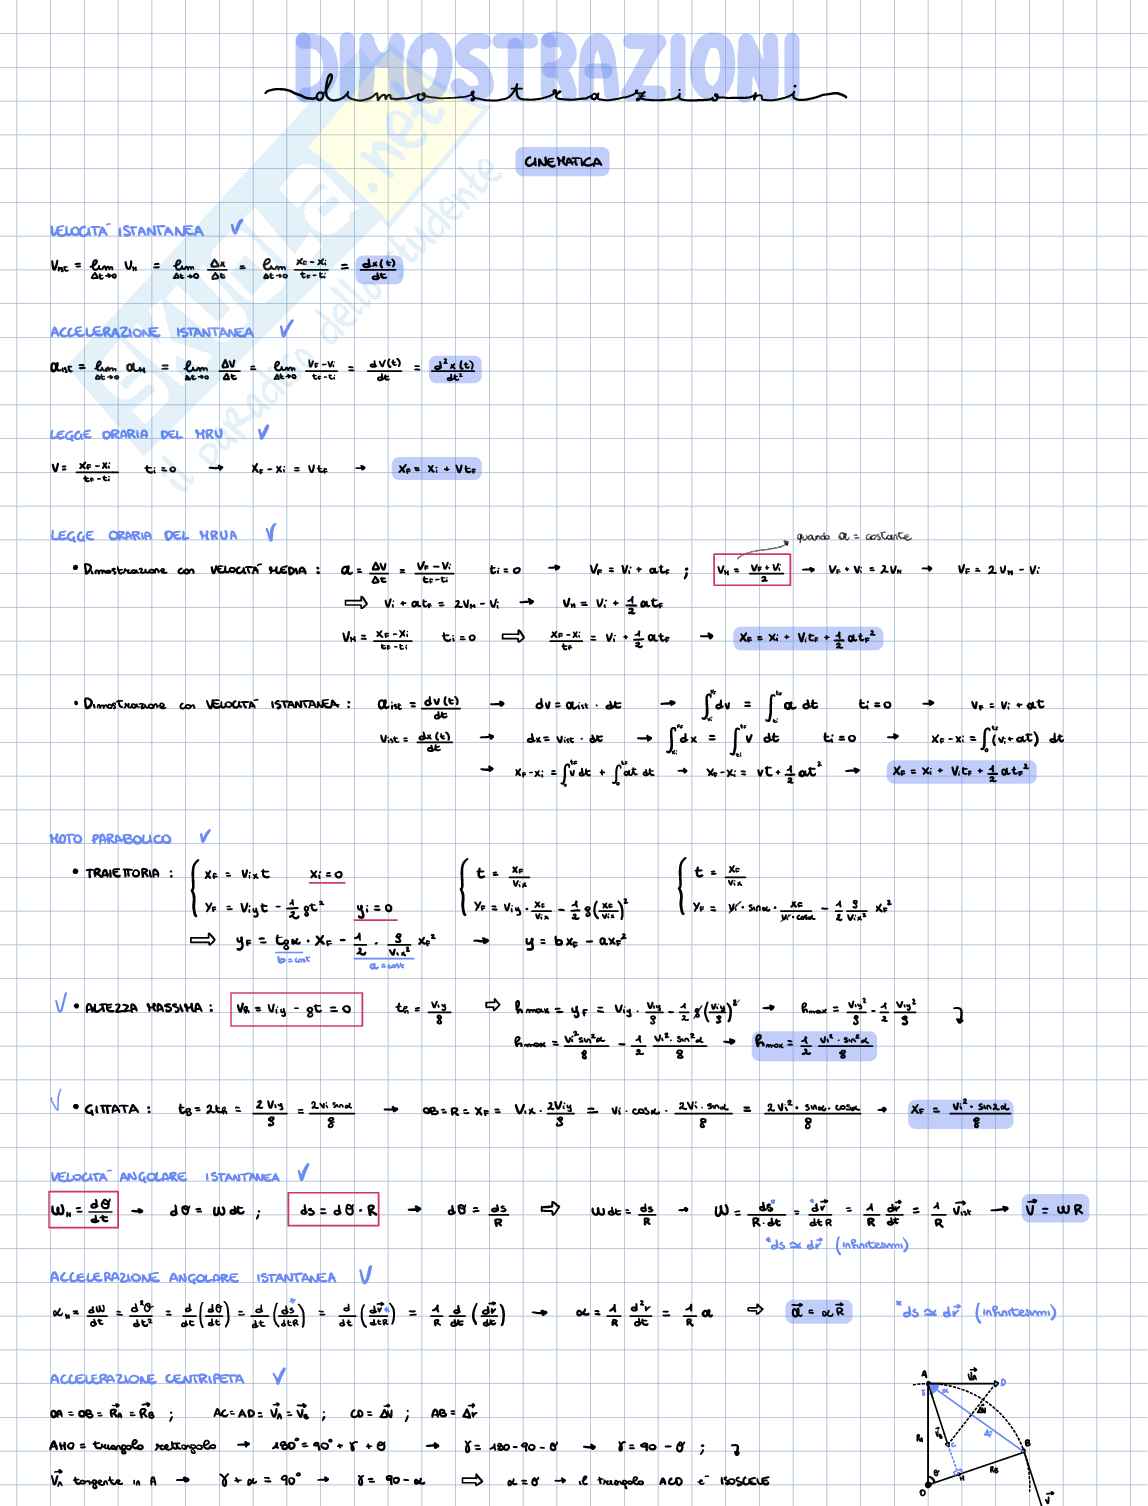 DIMOSTRAZIONI
dimostrazioni
SKUOLA.net
il paradiso dello studente
CINEMATICA
VELOCITA' ISTANTANEA ✓
V_ist = lim_{Δt→0} V_M = lim_{Δt→0} Δx/Δt = lim_{Δt→0} (x_F - x_i)/(t_F - t_i) = dx(t)/dt
ACCELERAZIONE ISTANTANEA ✓
a_ist = lim_{Δt→0} a_M = lim_{Δt→0} ΔV/Δt = lim_{Δt→0} (V_F - V_i)/(t_F - t_i) = dV(t)/dt = d²x(t)/dt²
LEGGE ORARIA DEL MRU ✓
V = (x_F - x_i)/(t_F - t_i) t_i = 0 → x_F - x_i = Vt_F → x_F = x_i + Vt_F
LEGGE ORARIA DEL MRUA ✓
quando a = costante
• Dimostrazione con VELOCITA' MEDIA : a = ΔV/Δt = (V_F - V_i)/(t_F - t_i) t_i = 0 → V_F = V_i + at_F ; V_M = (V_F + V_i)/2 → V_F + V_i = 2V_M → V_F = 2V_M - V_i
⇒ V_i + at_F = 2V_M - V_i → V_M = V_i + 1/2 at_F
V_M = (x_F - x_i)/(t_F - t_i) t_i = 0 ⇒ (x_F - x_i)/t_F = V_i + 1/2 at_F → x_F = x_i + V_i t_F + 1/2 at_F²
• Dimostrazione con VELOCITA' ISTANTANEA : a_ist = dv(t)/dt → dv = a_ist · dt → ∫_{vi}^{vF} dv = ∫_{ti}^{tF} a dt t_i = 0 → V_F = V_i + at
V_ist = dx(t)/dt → dx = V_ist · dt → ∫_{xi}^{xF} dx = ∫_{ti}^{tF} v dt t_i = 0 → x_F - x_i = ∫_0^{tF} (v_i + at) dt
→ x_F - x_i = ∫_0^{tF} v dt + ∫_0^{tF} at dt → x_F - x_i = vt + 1/2 at² → x_F = x_i + V_i t_F + 1/2 at_F²
MOTO PARABOLICO ✓
• TRAIETTORIA : { x_F = V_ix t x_i = 0 { t = x_F/V_ix { t = x_F/V_ix
y_F = V_iy t - 1/2 gt² y_i = 0 y_F = V_iy · x_F/V_ix - 1/2 g (x_F/V_ix)² y_F = v_i · sinα · x_F/(v_i · cosα) - 1/2 g/V_ix² x_F²
⇒ y_F = tgα · x_F - 1/2 · g/V_ix² x_F² → y = bx_F - ax_F²
b = cost a = cost
✓ • ALTEZZA MASSIMA : V_A = V_iy - gt = 0 t_A = V_iy/g ⇒ h_max = y_F = V_iy · V_iy/g - 1/2 g (V_iy/g)² → h_max = V_iy²/g - 1/2 V_iy²/g
h_max = V_i² sin²α/g - 1/2 V_i² · sin²α/g → h_max = 1/2 V_i² · sin²α/g
✓ • GITTATA : t_B = 2t_A = 2V_iy/g = 2V_i sinα/g → OB = R = x_F = V_ix · 2V_iy/g = V_i · cosα · 2V_i · sinα/g = 2V_i² · sinα · cosα/g → x_F = V_i² · sin2α/g
VELOCITA' ANGOLARE ISTANTANEA ✓
ω_M = dθ/dt → dθ = ωdt ; ds = dθ · R → dθ = ds/R ⇒ ωdt = ds/R → ω = ds*/(R · dt) = dr⃗*/(dt R) = 1/R dr⃗/dt = 1/R V⃗_ist → V⃗ = ωR
*ds ≃ dr⃗ (infinitesimi)
ACCELERAZIONE ANGOLARE ISTANTANEA ✓
α_M = dω/dt = d²θ/dt² = d/dt (dθ/dt) = d/dt (ds*/dtR) = d/dt (dr⃗*/dtR) = 1/R d/dt (dr⃗/dt) → α = 1/R d²r/dt = 1/R a ⇒ a⃗ = αR⃗ *ds ≃ dr⃗ (infinitesimi)
ACCELERAZIONE CENTRIPETA ✓
OA = OB = R⃗_A = R⃗_B ; AC = AD = V⃗_A = V⃗_B ; CD = ΔV⃗ ; AB = Δr⃗
AHO = triangolo rettangolo → 180° = 90° + γ + θ → γ = 180 - 90 - θ → γ = 90 - θ ;
V⃗_A tangente in A → γ + α = 90° → γ = 90 - α ⇒ α = θ → il triangolo ACD e' ISOSCELE
A V⃗_A D
γ α
ΔV
V⃗_B Δr
R_A C B
H
θ R_B
O V⃗